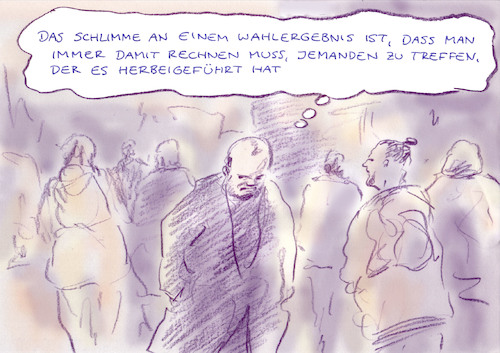 DAS SCHLIMME AN EINEM WAHLERGEBNIS IST, DASS MAN
IMMER DAMIT RECHNEN MUSS, JEMANDEN ZU TREFFEN,
DER ES HERBEIGEFÜHRT HAT